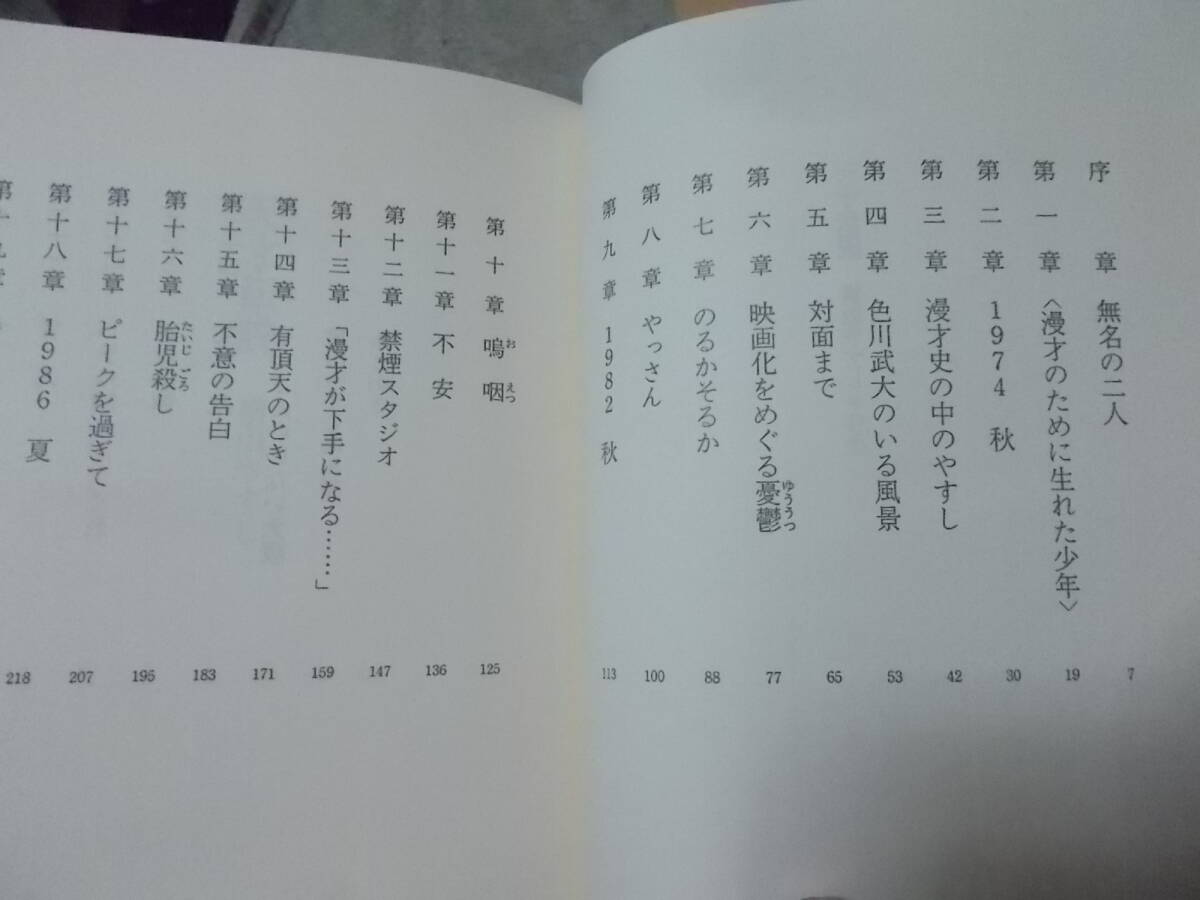 序章 無名の二人 7
第一章 〈漫才のために生れた少年〉 19
第二章 1974 秋 30
第三章 漫才史の中のやすし 42
第四章 色川武大のいる風景 53
第五章 対面まで 65
第六章 映画化をめぐる憂鬱 77
ゆううつ
第七章 のるかそるか 88
第八章 やっさん 100
第九章 1982 秋 113
第十章 嗚咽 125
おえつ
第十一章 不安 136
第十二章 禁煙スタジオ 147
第十三章 「漫才が下手になる……」 159
第十四章 有頂天のとき 171
第十五章 不意の告白 183
第十六章 胎児殺し 195
たいじごろ
第十七章 ピークを過ぎて 207
第十八章 1986 夏 218
第十九章